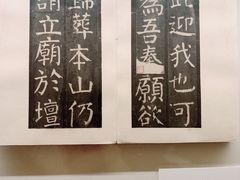 此迎我也可
為吾奏願欲
歸葬本山仍
請立廟於壇